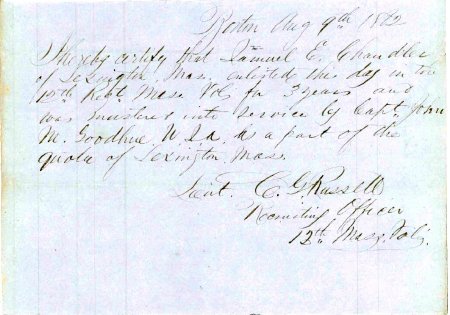 Boston Aug 9th 1862
I hereby certify that Samuel E. Chandler
of Lexington, Mass, enlisted this day in the
12th Regt Mass Vol for 3 years and
was mustered into service by Capt. John
M. Goodhue U.S.A. as a part of the
quota of Lexington, Mass.
Lieut. C. G. Russell
Recruiting Officer
12th Mass. Vols.